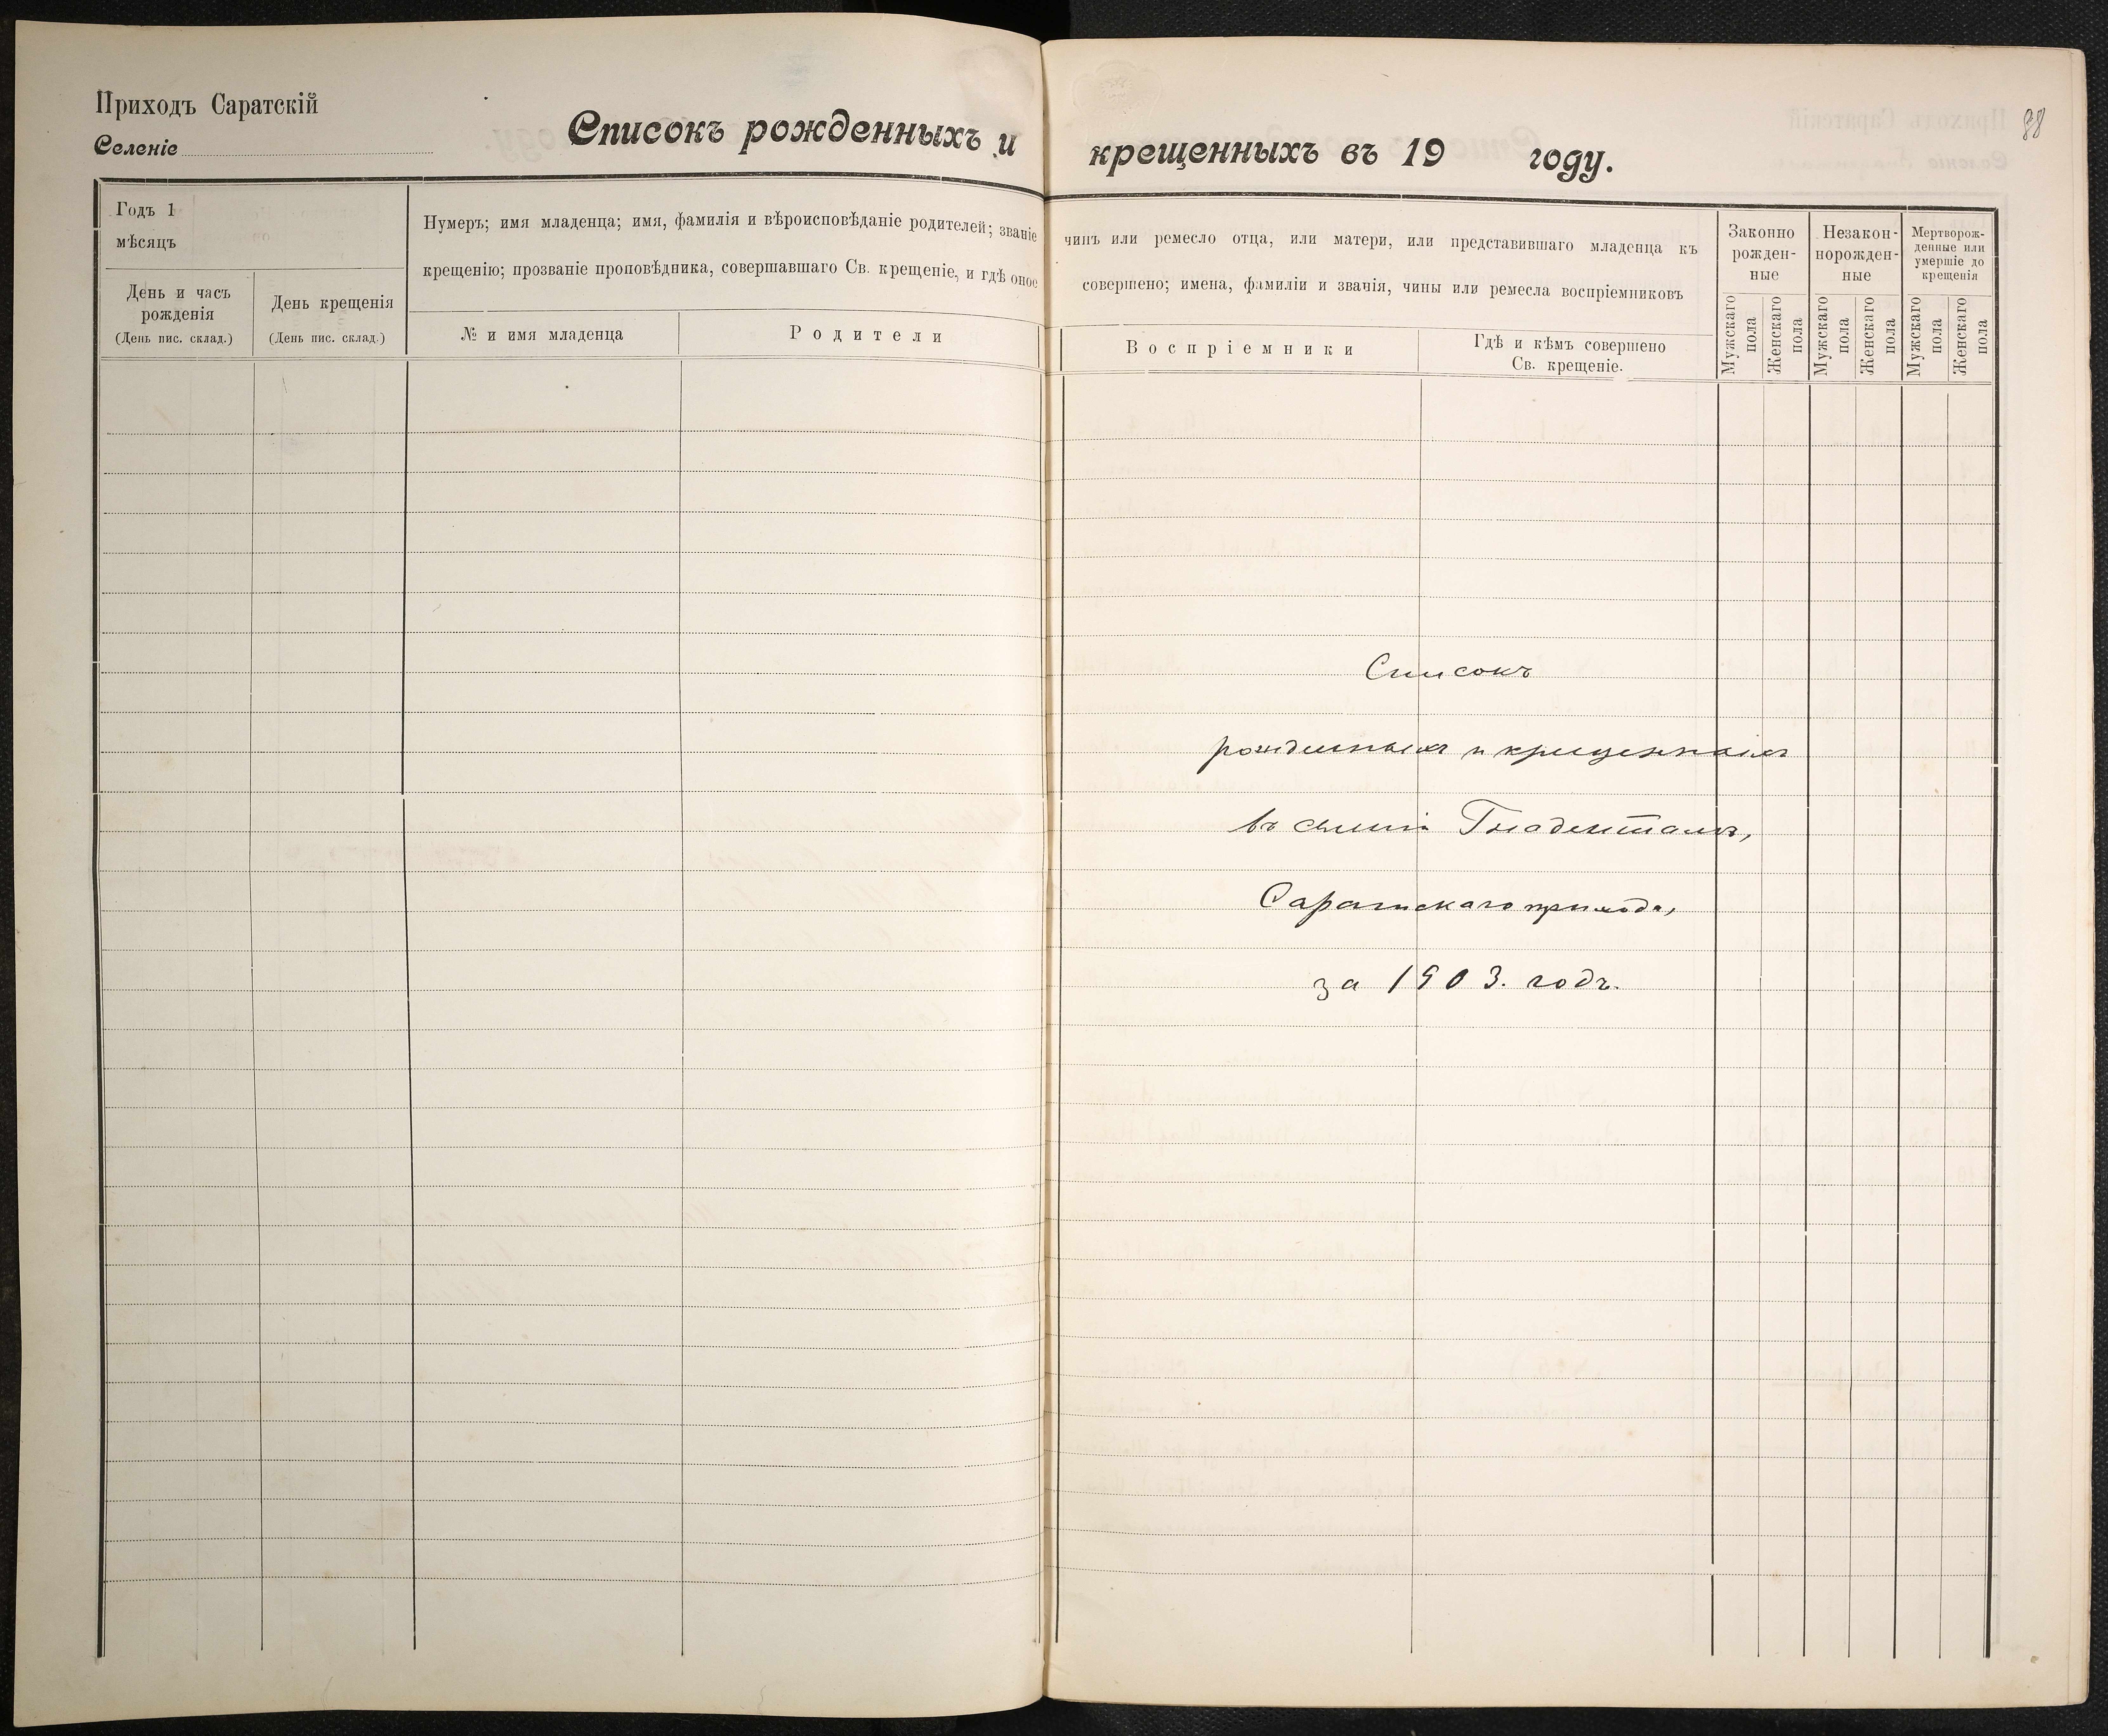 Приходъ Саратскій
Селеніе
Списокъ рожденныхъ и крещенныхъ въ 19 году.
88
Годъ 1
мѣсяцъ
День и часъ
рожденія
(День пис. склад.)
День крещенія
(День пис. склад.)
Нумеръ; имя младенца; имя, фамилія и вѣроисповѣданіе родителей; званіе
крещенію; прозваніе проповѣдника, совершавшаго Св. крещеніе, и гдѣ оное
№ и имя младенца
Родители
чинъ или ремесло отца, или матери, или представившаго младенца къ
совершено; имена, фамиліи и званія, чины или ремесла воспріемниковъ
Воспріемники
Гдѣ и кѣмъ совершено
Св. крещеніе.
Законно
рожден-
ные
Незакон-
норожден-
ные
Мертворож-
денные или
умершіе до
крещенія
Мужскаго
пола
Женскаго
пола
Мужскаго
пола
Женскаго
пола
Мужскаго
пола
Женскаго
пола
Списокъ
рожденныхъ и крещенныхъ
въ селеніи Гнаденталъ,
Саратскаго прихода,
за 1903. годъ.